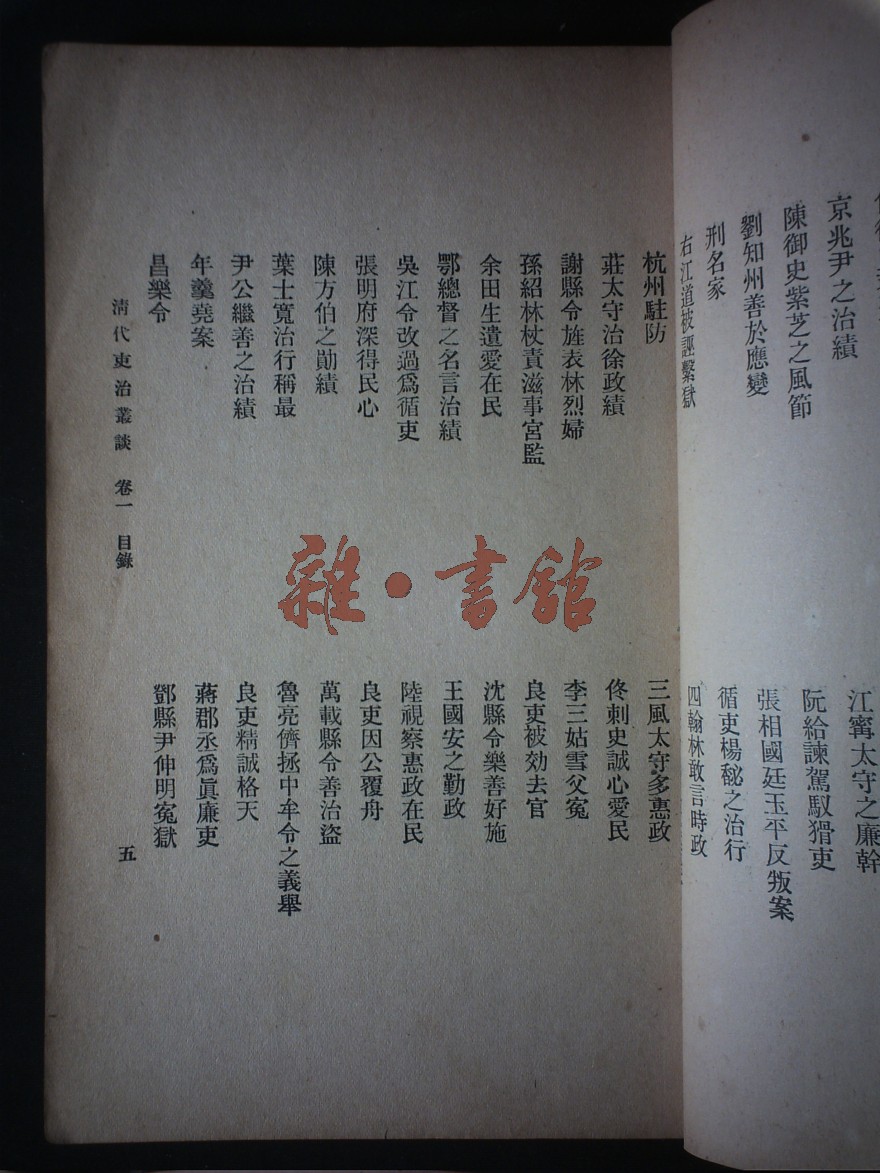 京兆尹之治績
陳御史紫芝之風節
劉知州善於應變
刑名家
右江道被誣繫獄
江寗太守之廉幹
阮給諫駕馭猾吏
張相國廷玉平反叛案
循吏楊秘之治行
四翰林敢言時政
杭州駐防
莊太守治徐政績
謝縣令旌表林烈婦
孫紹林杖責滋事宮監
余田生遺愛在民
鄂總督之名言治績
吳江令改過爲循吏
張明府深得民心
陳方伯之勛績
葉士寬治行稱最
尹公繼善之治績
年羹堯案
昌樂令
三風太守多惠政
佟刺史誠心愛民
李三姑雪父寃
良吏被効去官
沈縣令樂善好施
王國安之勤政
陸視察惠政在民
良吏因公覆舟
萬載縣令善治盜
魯亮儕拯中牟令之義舉
良吏精誠格天
蔣郡丞爲眞廉吏
鄧縣尹伸明寃獄
清代吏治叢談 卷一 目錄
五
雜·書館